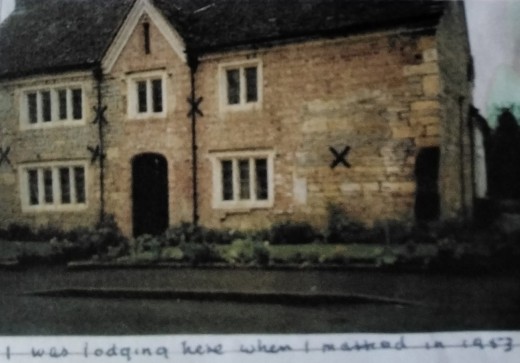 I was lodging here when I married in 1953